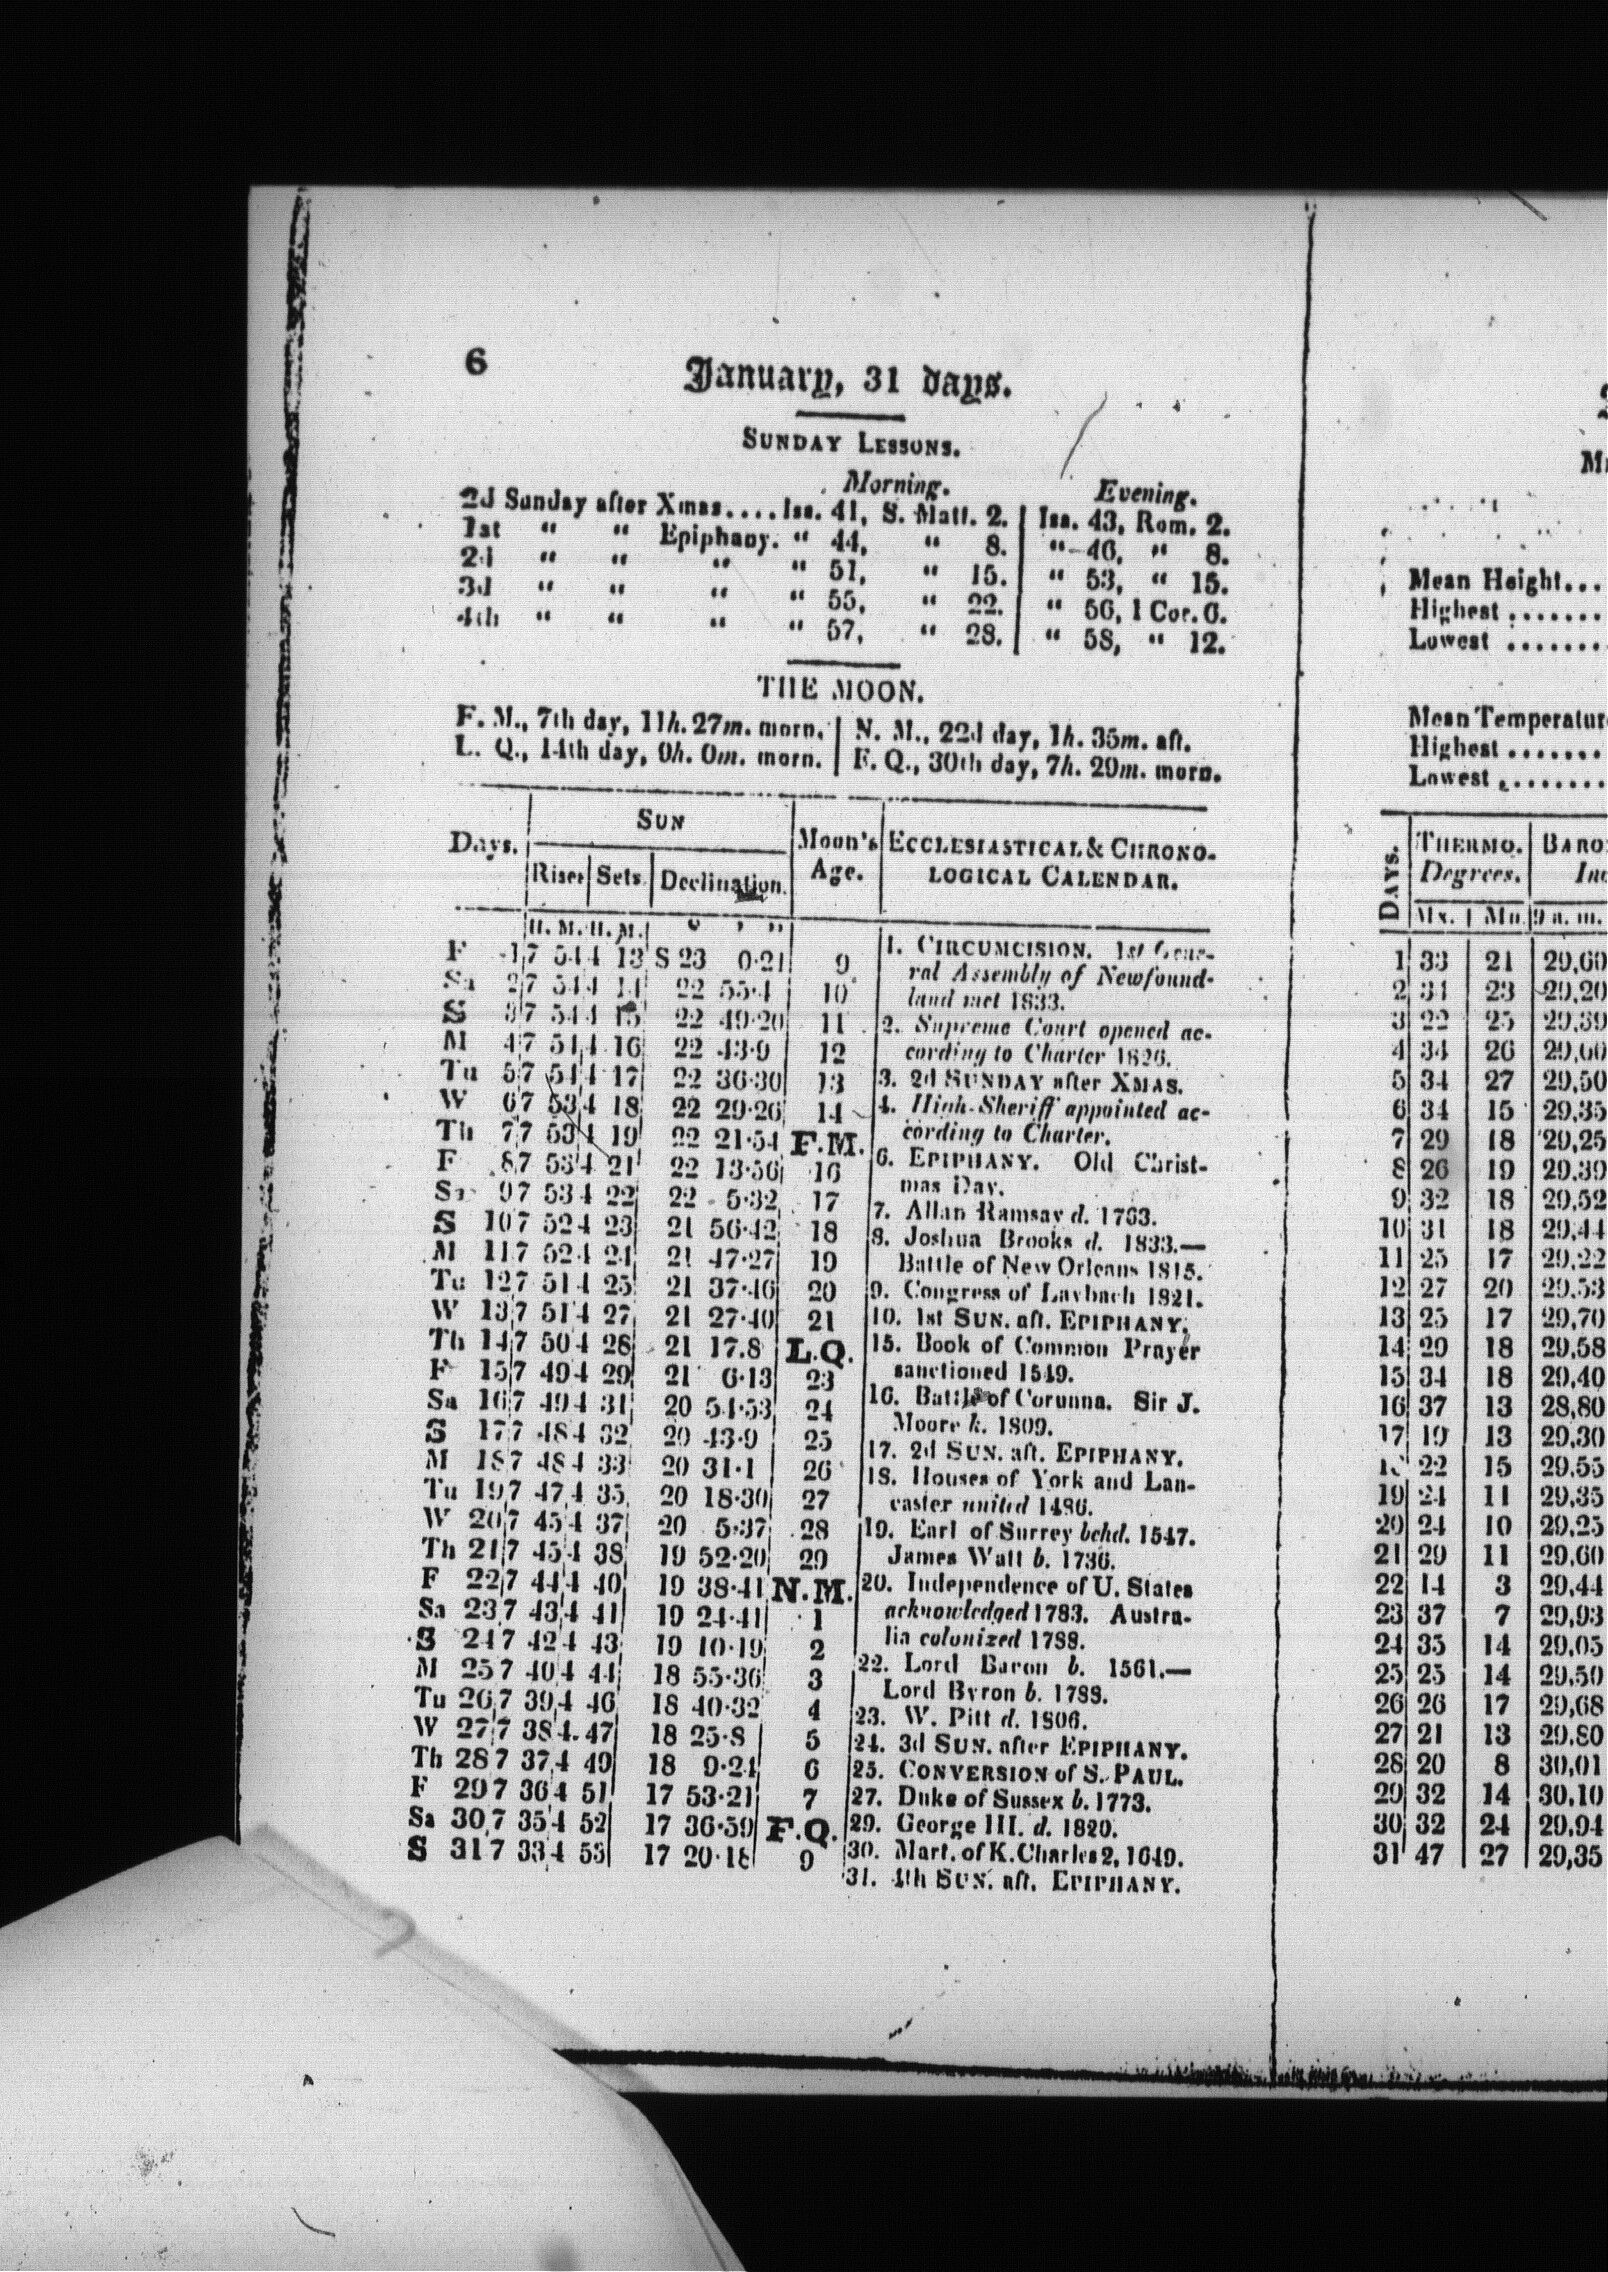 6
January, 31 days.
SUNDAY LESSONS.
Morning. Evening.
2d Sunday after Xmas....Isa. 41, S. Matt. 2. Isa. 43, Rom. 2.
1st “ “ Epiphany. “ 44, “ 8. “ 46, “ 8.
2d “ “ “ “ 51, “ 15. “ 53, “ 15.
3d “ “ “ “ 55, “ 22. “ 56, 1 Cor. 6.
4th “ “ “ “ 57, “ 28. “ 58, “ 12.
THE MOON.
F. M., 7th day, 11h. 27m. morn. N. M., 22d day, 1h. 35m. aft.
L. Q., 14th day, 0h. 0m. morn. F. Q., 30th day, 7h. 29m. morn.
Days. SUN Moon's Age. ECCLESIASTICAL & CHRONO-
Rises Sets. Declination. LOGICAL CALENDAR.
H. M. H. M. ° ' "
F 1 7 54 4 13 S 23 0·21 9
Sa 2 7 54 4 14 22 55·4 10
S 3 7 54 4 15 22 49·20 11
M 4 7 54 4 16 22 43·9 12
Tu 5 7 54 4 17 22 36·30 13
W 6 7 53 4 18 22 29·26 14
Th 7 7 53 4 19 22 21·54 F.M.
F 8 7 53 4 21 22 13·56 16
Sa 9 7 53 4 22 22 5·32 17
S 10 7 52 4 23 21 56·42 18
M 11 7 52 4 24 21 47·27 19
Tu 12 7 51 4 25 21 37·46 20
W 13 7 51 4 27 21 27·40 21
Th 14 7 50 4 28 21 17.8 L.Q.
F 15 7 49 4 29 21 6·13 23
Sa 16 7 49 4 31 20 54·53 24
S 17 7 48 4 32 20 43·9 25
M 18 7 48 4 33 20 31·1 26
Tu 19 7 47 4 35 20 18·30 27
W 20 7 45 4 37 20 5·37 28
Th 21 7 45 4 38 19 52·20 29
F 22 7 44 4 40 19 38·41 N.M.
Sa 23 7 43 4 41 19 24·41 1
S 24 7 42 4 43 19 10·19 2
M 25 7 40 4 44 18 55·36 3
Tu 26 7 39 4 46 18 40·32 4
W 27 7 38 4 47 18 25·8 5
Th 28 7 37 4 49 18 9·24 6
F 29 7 36 4 51 17 53·21 7
Sa 30 7 35 4 52 17 36·59 F.Q.
S 31 7 33 4 53 17 20·18 9
1. CIRCUMCISION. 1st Gene-
ral Assembly of Newfound-
land met 1833.
2. Supreme Court opened ac-
cording to Charter 1826.
3. 2d SUNDAY after XMAS.
4. High-Sheriff appointed ac-
cording to Charter.
6. EPIPHANY. Old Christ-
mas Day.
7. Allan Ramsay d. 1763.
8. Joshua Brooks d. 1833.—
Battle of New Orleans 1815.
9. Congress of Laybach 1821.
10. 1st SUN. aft. EPIPHANY.
15. Book of Common Prayer
sanctioned 1549.
16. Battle of Corunna. Sir J.
Moore k. 1809.
17. 2d SUN. aft. EPIPHANY.
18. Houses of York and Lan-
caster united 1486.
19. Earl of Surrey behd. 1547.
James Watt b. 1736.
20. Independence of U. States
acknowledged 1783. Austra-
lia colonized 1788.
22. Lord Bacon b. 1561.—
Lord Byron b. 1788.
23. W. Pitt d. 1806.
24. 3d SUN. after EPIPHANY.
25. CONVERSION of S. PAUL.
27. Duke of Sussex b. 1773.
29. George III. d. 1820.
30. Mart. of K. Charles 2, 1649.
31. 4th SUN. aft. EPIPHANY.
Mean Height...
Highest .......
Lowest .......
Mean Temperatur
Highest .......
Lowest ........
DAYS. THERMO. BARO
Degrees. Inc
Mx. Mn. 9 a.m.
1 33 21 29,60
2 34 23 29,20
3 22 25 29,39
4 34 26 29,60
5 34 27 29,50
6 34 15 29,35
7 29 18 29,25
8 26 19 29,39
9 32 18 29,52
10 31 18 29,44
11 25 17 29,22
12 27 20 29,53
13 25 17 29,70
14 29 18 29,58
15 34 18 29,40
16 37 13 28,80
17 19 13 29,30
22 15 29,55
19 24 11 29,35
20 24 10 29,25
21 29 11 29,60
22 14 3 29,44
23 37 7 29,93
24 35 14 29,05
25 25 14 29,50
26 26 17 29,68
27 21 13 29,80
28 20 8 30,01
29 32 14 30,10
30 32 24 29,94
31 47 27 29,35